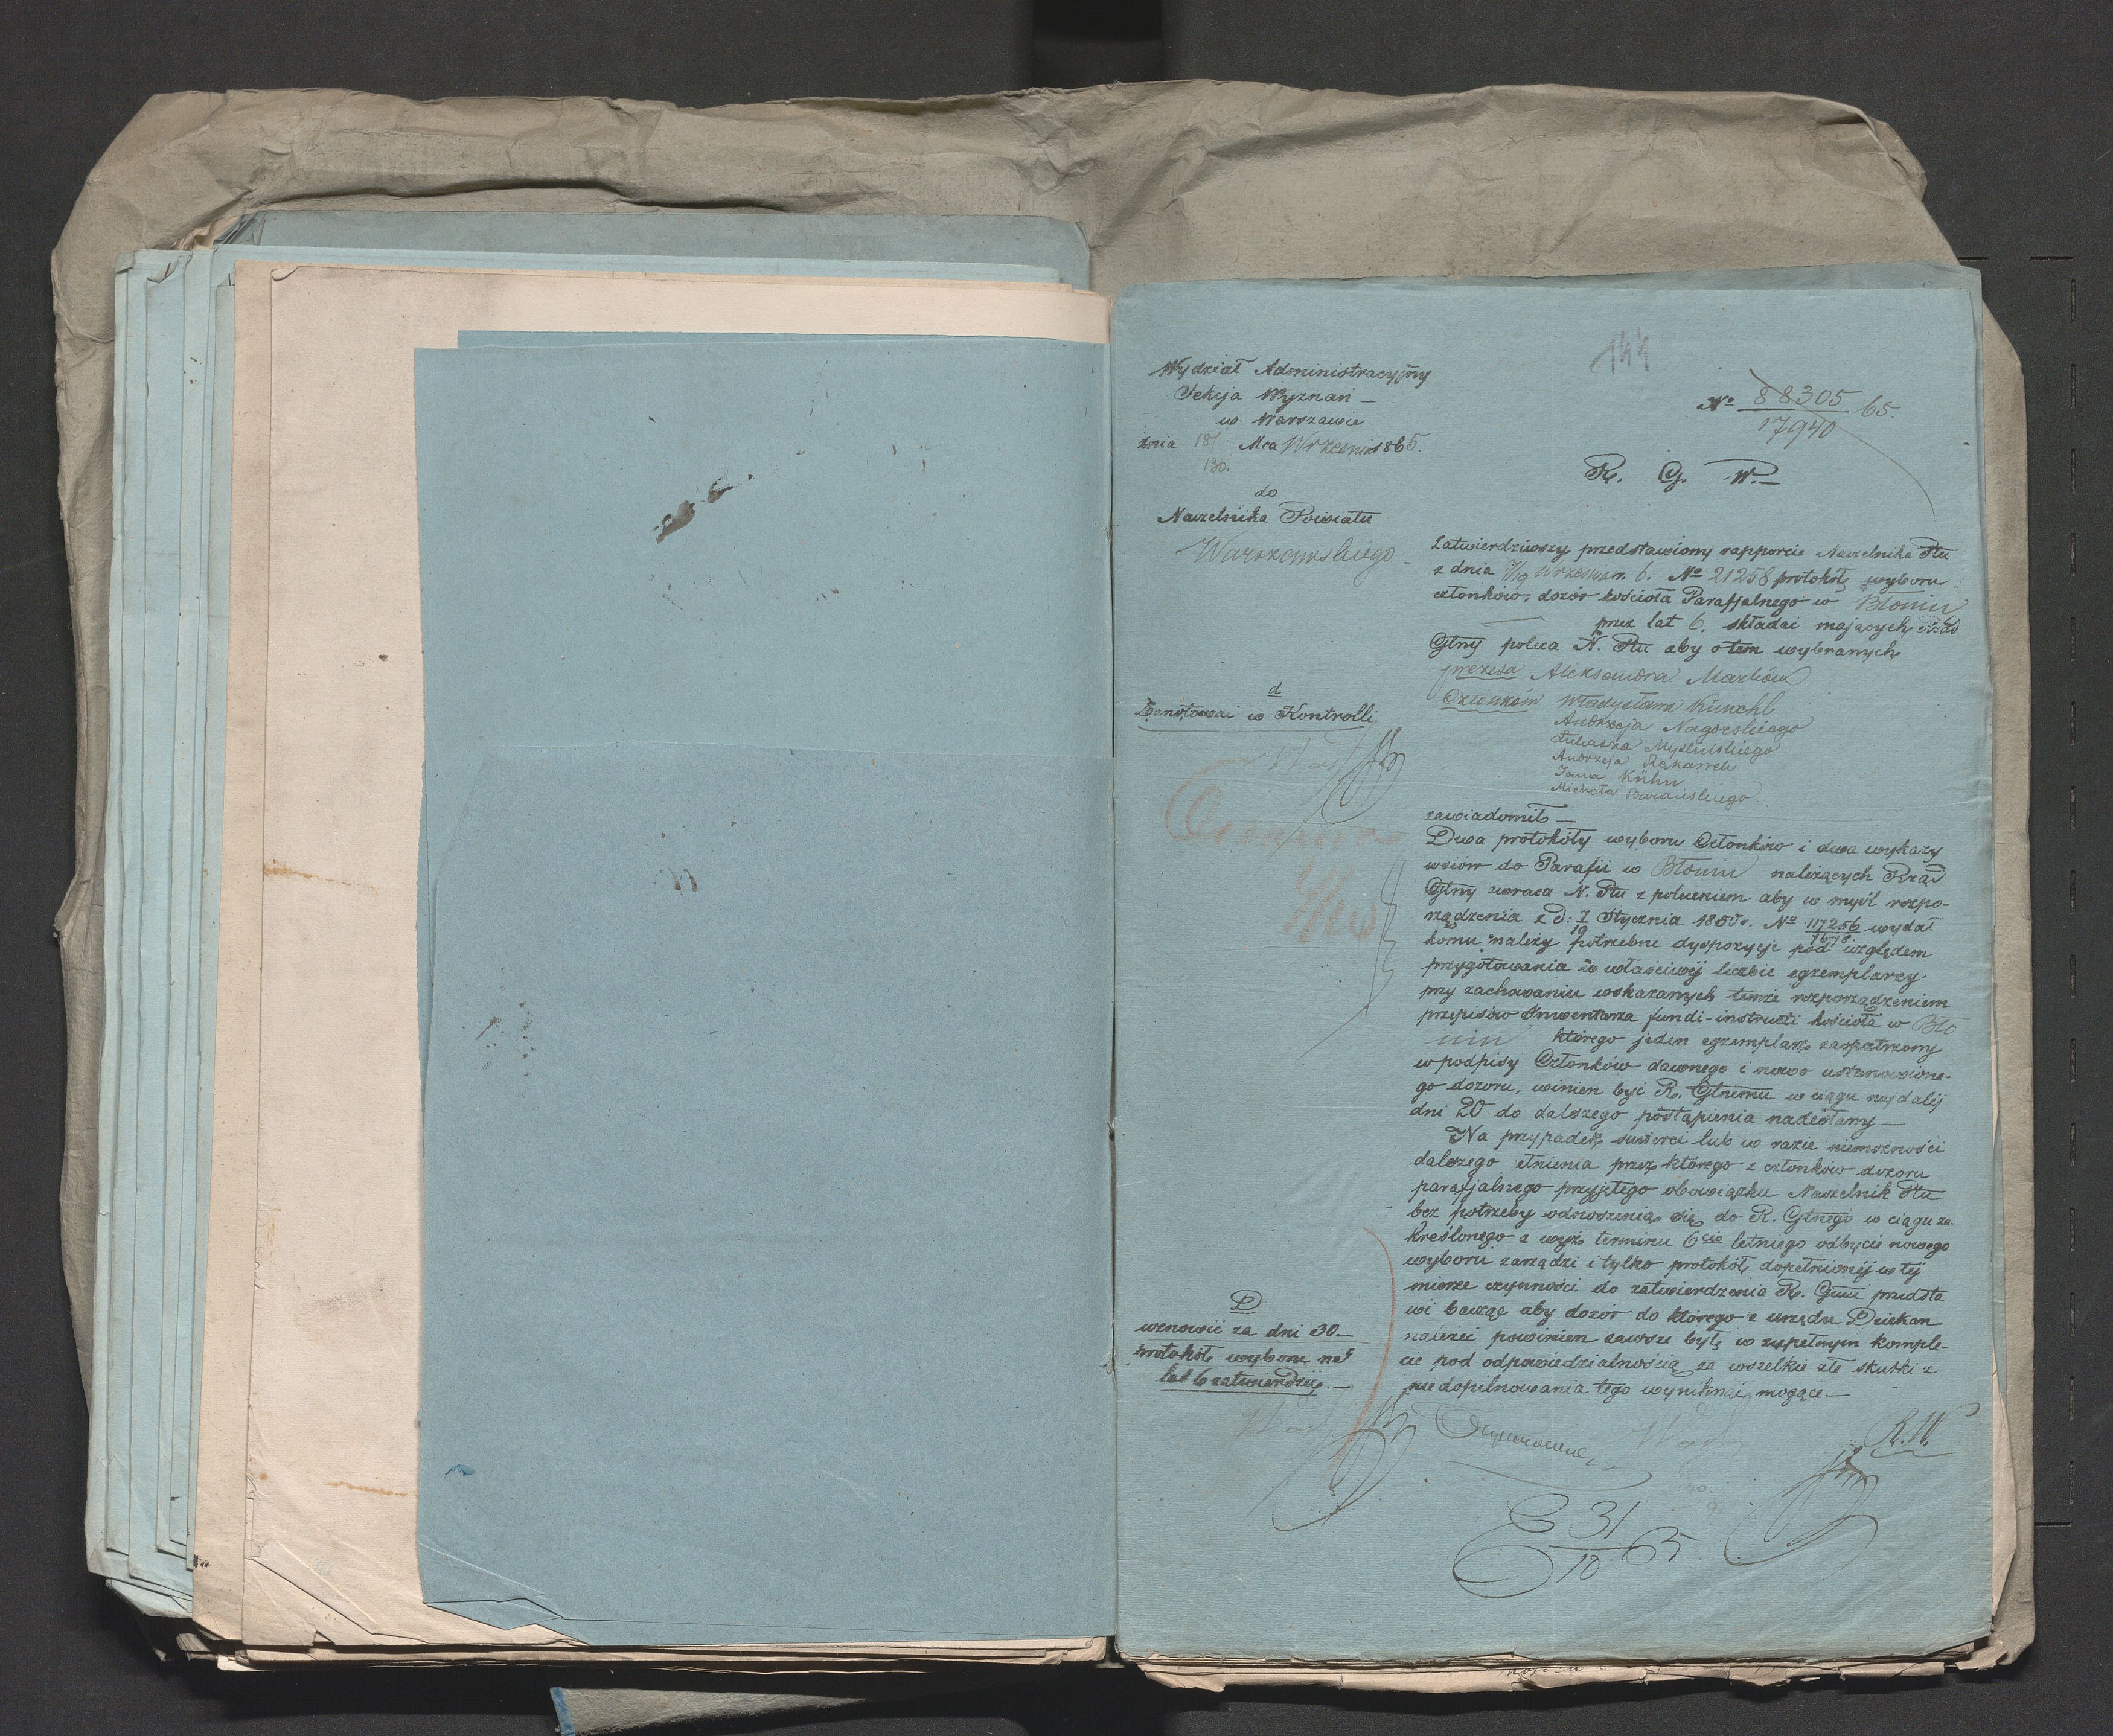 144
Wydział Administracyjny
Sekcja Wyznań —
w Warszawie
dnia 18/30. Mca Wrzesnia 1865.
do
Naczelnika Powiatu
Warszawskiego
No 88305/17940 65.
R. G. W. —
Zatwierdziwszy przedstawiony rapporcie Naczelnika Ptu
z dnia 7/19 Wrzesnia r. b. No 21258 protokół wyboru
członków, dozór kościoła Parafjalnego w Błoniu
przez lat 6. składać mających Rząd
Glny poleca N. Ptu aby o tem wybranych
prezesa Aleksandra
Członków Władysława
Andrzeja Nagórskiego
Łukasza
Andrzeja
Jana Kühn
Michała Barańskiego
zawiadomił —
Dwa protokóły wyboru Członków i dwa wykazy
wsiów do Parafii w Błoniu należących Rząd
Glny zwraca N. Ptu z poleceniem aby w myśl rozpo-
rządzenia z d: 7/19 Stycznia 1850 r. No 117256/7678 wydał
komu należy potrzebne dyspozycje pod względem
przygotowania w właściwej liczbie egzemplarzy
przy zachowaniu wskazanych temże rozporządzeniem
przepisów Inwentarza fundi-instructi kościoła w Bło
niu którego jeden egzemplarz zaopatrzony
w podpisy Członków dawnego i nowo ustanowione-
go dozoru, winien być R. Glnemu w ciągu najdalej
dni 20 do dalszego postąpienia nadesłany —
Na przypadek śmierci lub w razie niemożności
dalszego pełnienia przez którego z członków dozoru
parafjalnego przyjętego obowiązku Naczelnik Ptu
bez potrzeby odnoszenia się do R. Glnego w ciągu za
kreślonego z wyż terminu 6cio letniego odbycie nowego
wyboru zarządzi i tylko protokół dopełnionej w tej
mierze czynności do zatwierdzenia R. Gmu przedsta
wi bacząc aby dozór do którego z urzędu Dziekan
należeć powinien zawsze był w zupełnym komple-
cie pod odpowiedzialnością za wszelkie złe skutki z
niedopilnowania tego wyniknąć mogące —
d
Zanotować w Kontrolli
D
wznowić za dni 30 —
protokół wyboru na
lat 6 zatwierdzić —
R. W.
31/10 65